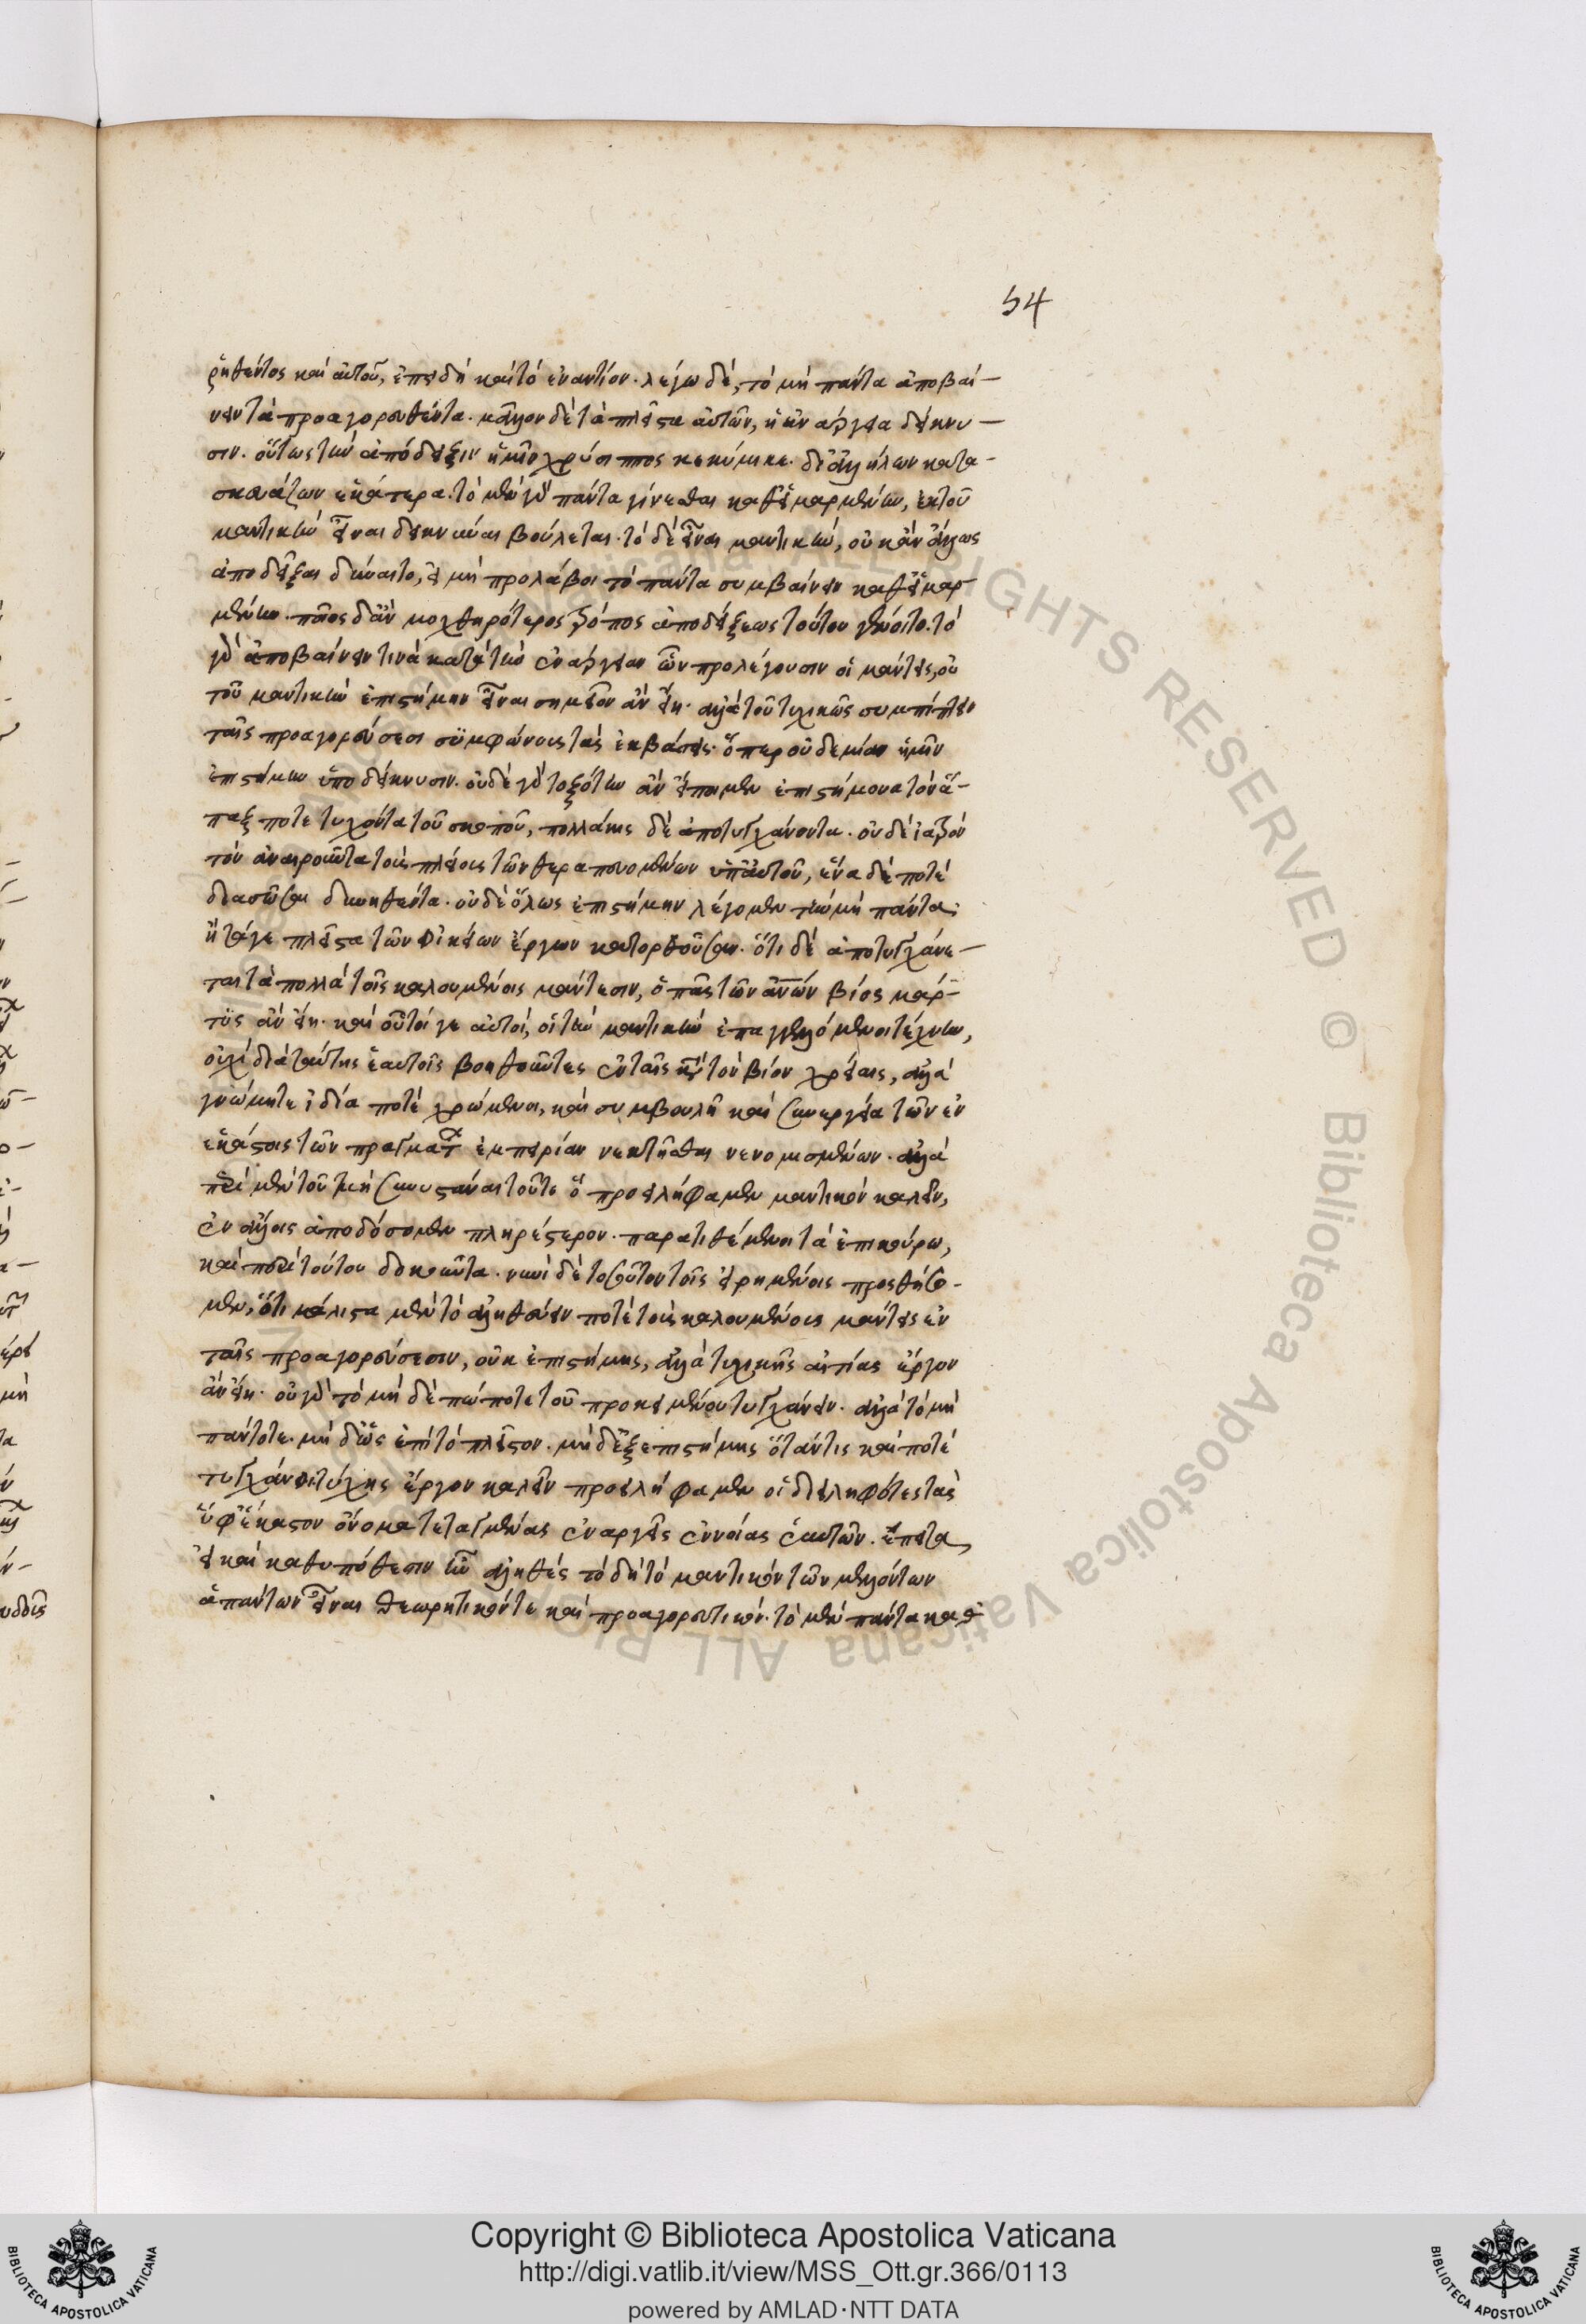 54
ῥηθέντος καὶ αὐτοῦ, ἐπειδὴ καὶ τὸ ἐναντίον. λέγω δὲ, τὸ μὴ πάντα ἀποβαί-
νειν τὰ προαγορευθέντα. μᾶλλον δὲ τὰ πλεῖστα αὐτῶν, ἡ ἐνάργεια δείκνυ-
σιν. οὕτως τὴν ἀπόδειξιν ἡμῖν χρύσιππος κεκόμικε. δι' ἀλλήλων κατα-
σκευάζων ἑκάτερα. τὸ μὲν γὰρ πάντα γίνεσθαι καθ' εἱμαρμένην, ἐκ τοῦ
μαντικὴν εἶναι δεικνύναι βούλεται. τὸ δὲ εἶναι μαντικὴν, οὐκ ἂν ἄλλως
ἀποδεῖξαι δύναιτο, εἰ μὴ προλάβοι τὸ πάντα συμβαίνειν καθ' εἱμαρ
μένην. ποῖος δ' ἂν μοχθηρότερος τρόπος ἀποδείξεως τούτου γένοιτο. τὸ
γὰρ ἀποβαίνειν τινὰ κατὰ τὴν ἐνάργειαν ὧν προλέγουσιν οἱ μάντεις, οὐ
τοῦ μαντικὴν ἐπιστήμην εἶναι σημεῖον ἂν εἴη. ἀλλὰ τοῦ τυχικῶς συμπίπτειν
ταῖς προαγορεύσεσι συμφώνους τὰς ἐκβάσεις. ὅπερ οὐδεμίαν ἡμῖν
ἐπιστήμην ὑποδείκνυσιν. οὐδὲ γὰρ τοξότην ἂν εἴποιμεν ἐπιστήμονα τὸν ἅ-
παξ ποτε τυχόντα τοῦ σκοποῦ, πολλάκις δὲ ἀποτυγχάνοντα. οὐδὲ ἰατρὸν
τὸν ἀναιροῦντα τοὺς πλείους τῶν θεραπευομένων ὑπ' αὐτοῦ, ἕνα δέ ποτε
διασῶσαι δυνηθέντα. οὐδὲ ὅλως ἐπιστήμην λέγομεν τὴν μὴ πάντα
ἢ τά γε πλεῖστα τῶν οἰκείων ἔργων κατορθοῦσαν. ὅτι δὲ ἀποτυγχάνε-
ται τὰ πολλὰ τοῖς καλουμένοις μάντεσιν, ὁ πᾶς τῶν ἀνων βίος μάρ-
τυς ἂν εἴη. καὶ οὗτοί γε αὐτοὶ, οἱ τὴν μαντικὴν ἐπαγγελλόμενοι τέχνην,
οὐχὶ διὰ ταύτης ἑαυτοῖς βοηθοῦντες ἐν ταῖς κατὰ τὸν βίον χρείαις, ἀλλὰ
γνώμῃ τε ἰδίᾳ ποτὲ χρώμενοι, καὶ συμβουλῇ καὶ συνεργείᾳ τῶν ἐν
ἑκάστοις τῶν πραγμάτ ἐμπειρίαν κεκτῆσθαι νενομισμένων. ἀλλὰ
περὶ μὲν τοῦ μὴ συνεστάναι τοῦτο ὃ προειλήφαμεν μαντικὸν καλεῖν,
ἐν ἄλλοις ἀποδόσομεν πληρέστερον. παρατιθέμενοι τὰ ἐπικούρῳ,
καὶ περὶ τούτου δοκοῦντα. νυνὶ δὲ τοσοῦτον τοῖς εἰρημένοις προσθήσο-
μεν, ὅτι μάλιστα μὲν τὸ ἀληθεύειν ποτὲ τοὺς καλουμένους μάντεις ἐν
ταῖς προαγορεύσεσιν, οὐκ ἐπιστήμης, ἀλλὰ τυχικῆς αἰτίας ἔργον
ἂν εἴη. οὐ γὰρ τὸ μηδὲ πώποτε τοῦ προκειμένου τυγχάνειν. ἀλλὰ τὸ μὴ
πάντοτε. μηδ' ὡς ἐπὶ τὸ πλεῖστον. μηδ' ἐξ ἐπιστήμης ὅταν τις καὶ ποτὲ
τυγχάνει τύχης ἔργον καλεῖν προειλήφαμεν οἱ διειληφότες τὰς
ὑφ' ἕκαστον ὄνομα τεταγμένας ἐναργεῖς ἐννοίας ἑαυτῶν. ἔπειτα,
εἰ καὶ καθ' υπόθεσιν ἦν ἀληθὲς τὸ δὴ τὸ μαντικὸν τῶν μελλόντων
ἁπάντων εἶναι θεωρητικόν τε καὶ προαγορευτικόν. τὸ μὲν πάντα καθ'
Copyright © Biblioteca Apostolica Vaticana
http://digi.vatlib.it/view/MSS_Ott.gr.366/0113
powered by AMLAD·NTT DATA